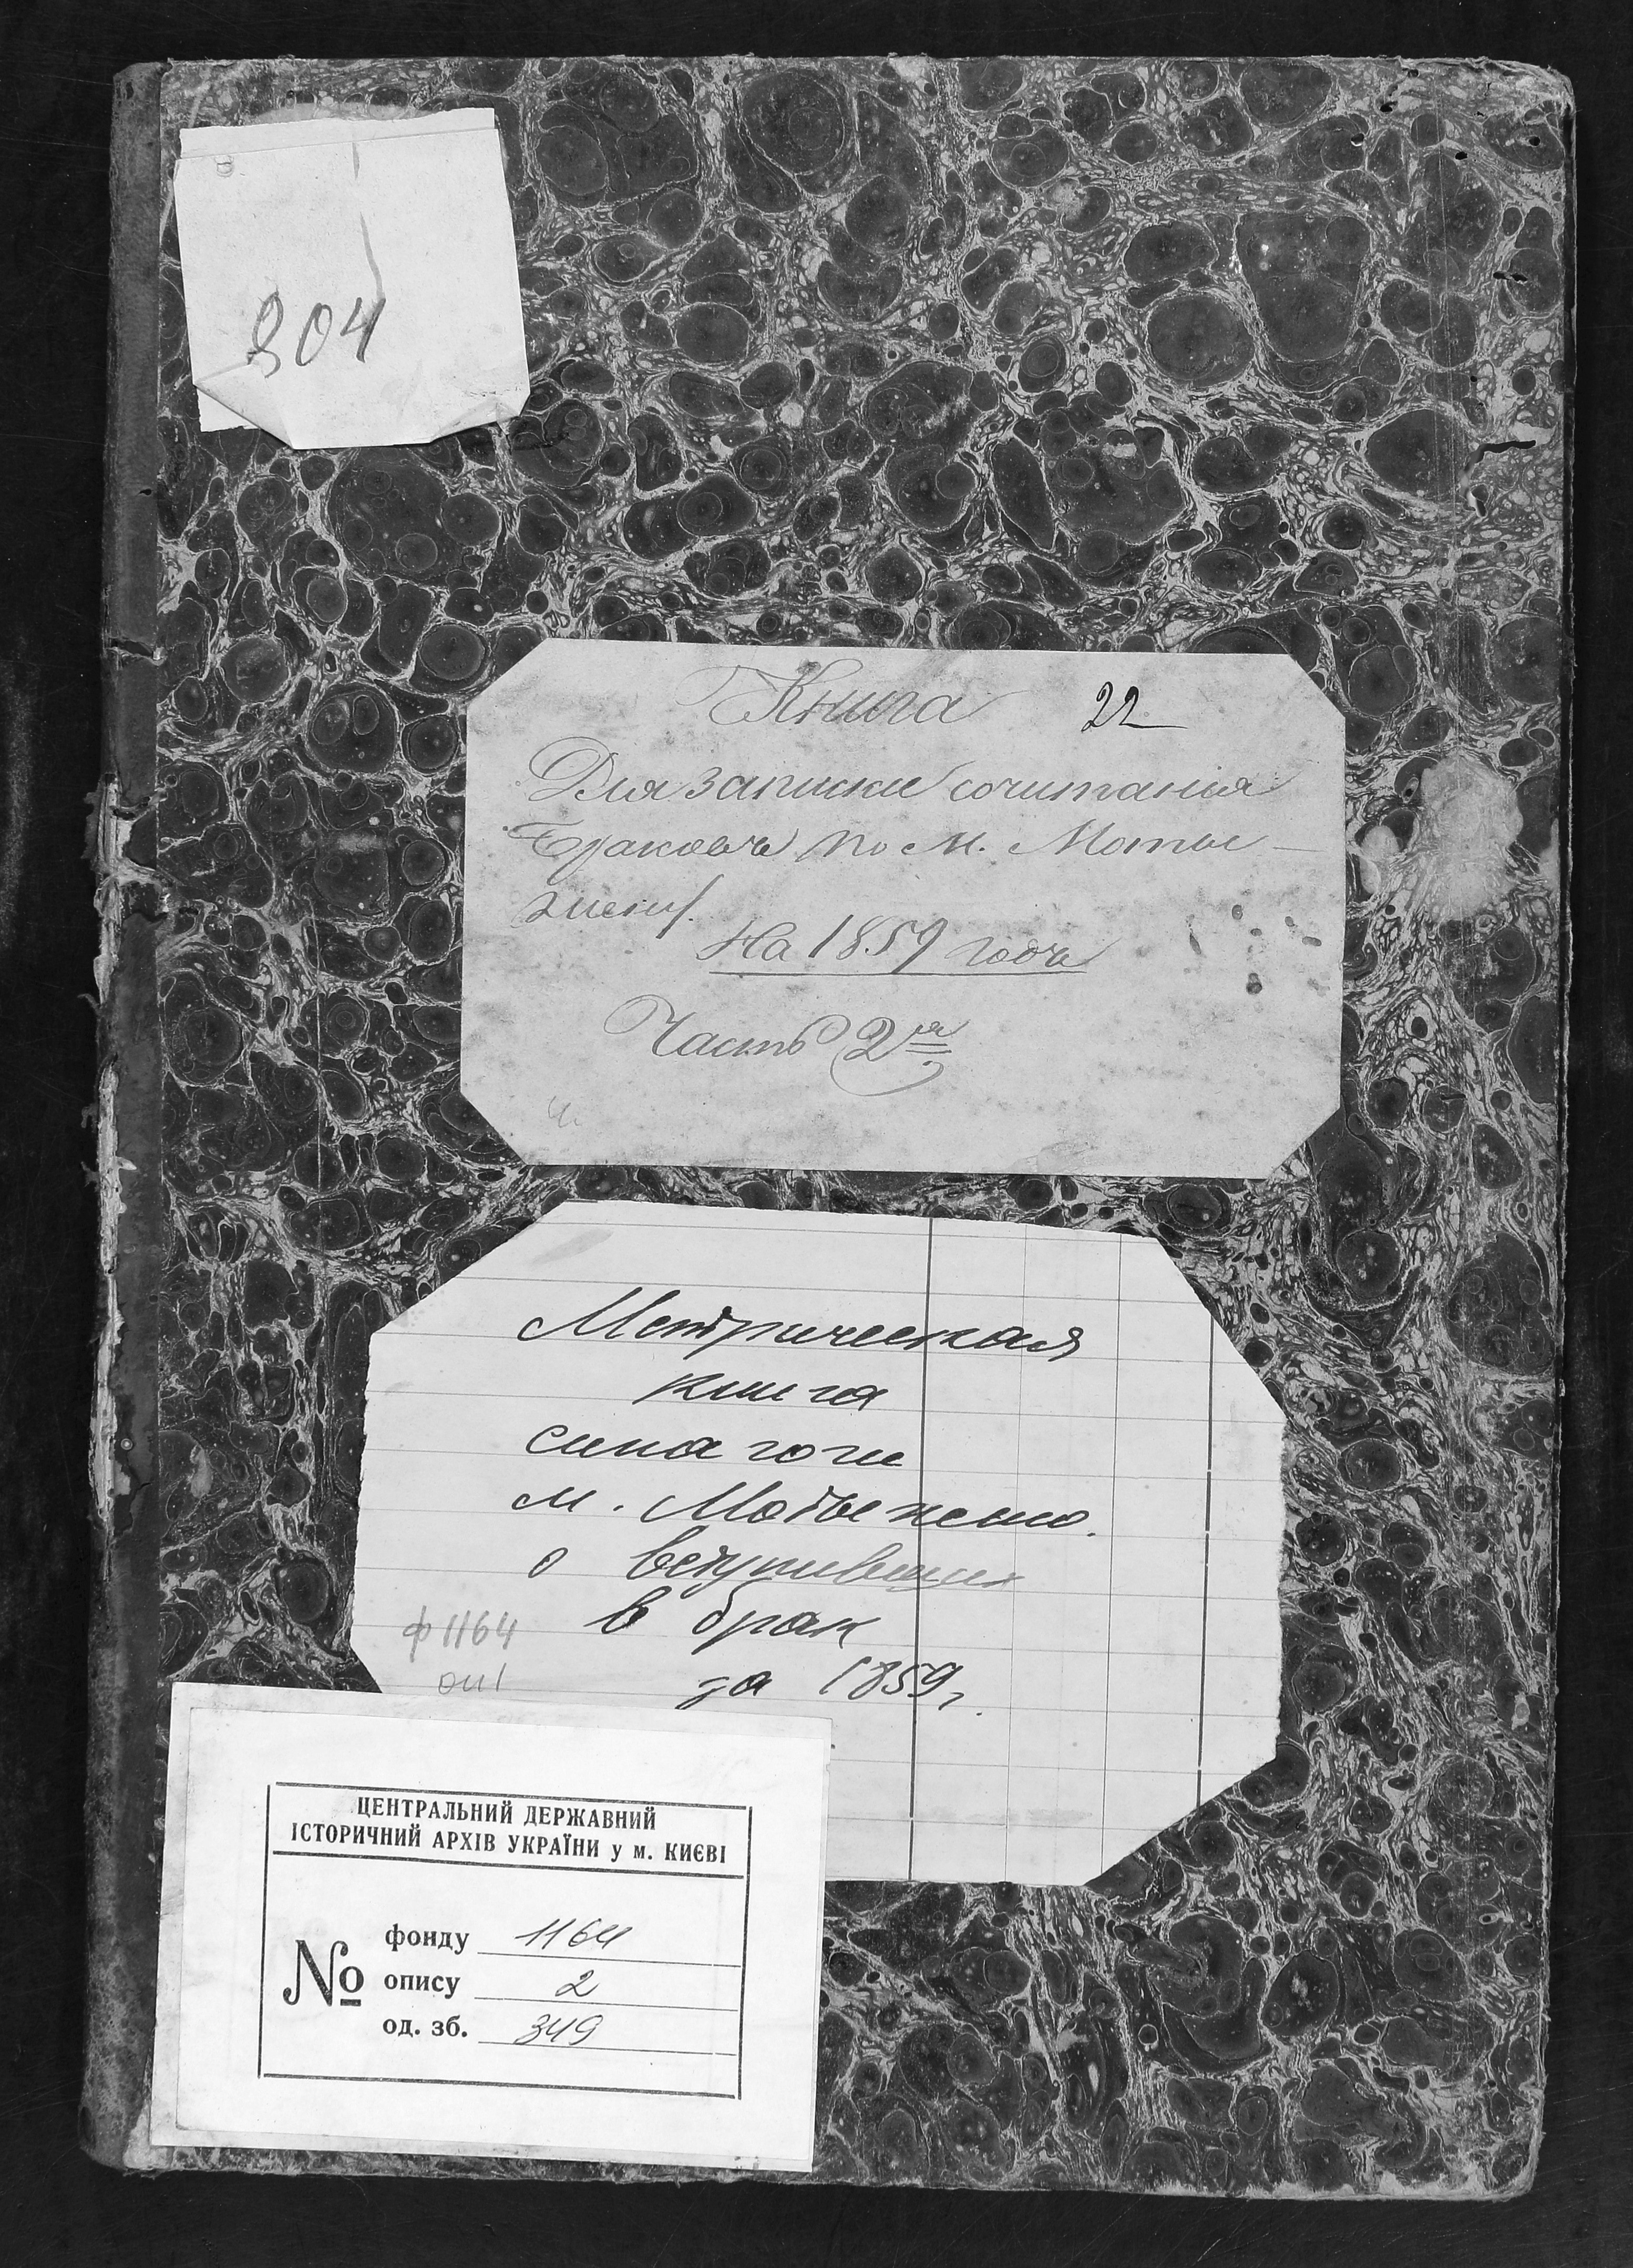 304
Книга 22
Для записки сочитанія
Браковъ по М. Мотыe-
На 1859 годъ
Часть 2я
Метрическая
книга
синагоги
м.
о вступивших
в брак
за 1859 г.
ф 1164
оп 1
ЦЕНТРАЛЬНИЙ ДЕРЖАВНИЙ
ІСТОРИЧНИЙ АРХІВ УКРАЇНИ у м. КИЄВІ
№
фонду 1164
опису 2
од. зб. 349